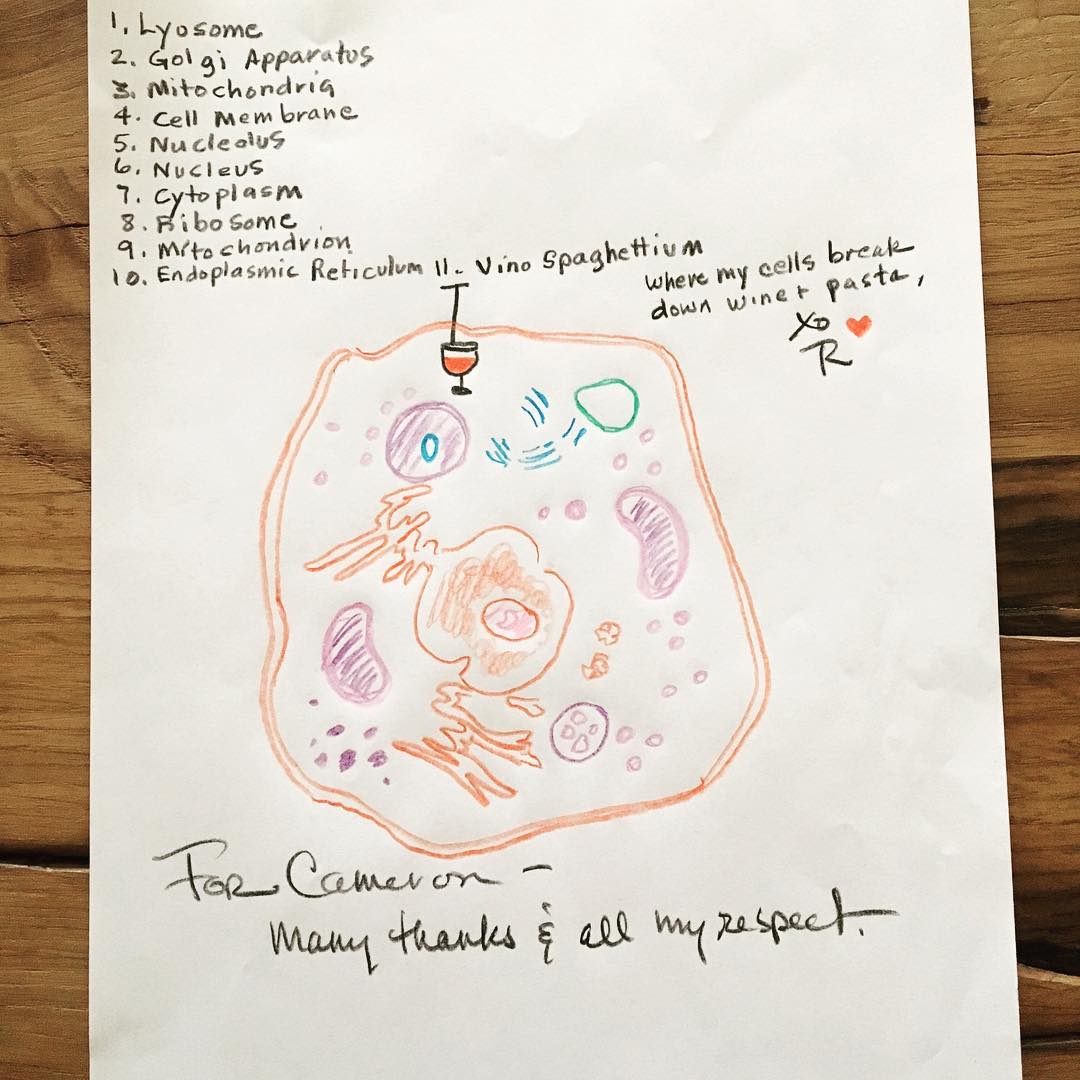 1. Lyosome
2. Golgi Apparatus
3. Mitochondria
4. Cell Membrane
5. Nucleolus
6. Nucleus
7. Cytoplasm
8. Ribosome
9. Mitochondrion
10. Endoplasmic Reticulum 11. Vino Spaghettium
where my cells break
down wine + pasta,
XO ♥
R
For Cameron -
Many thanks & all my respect.